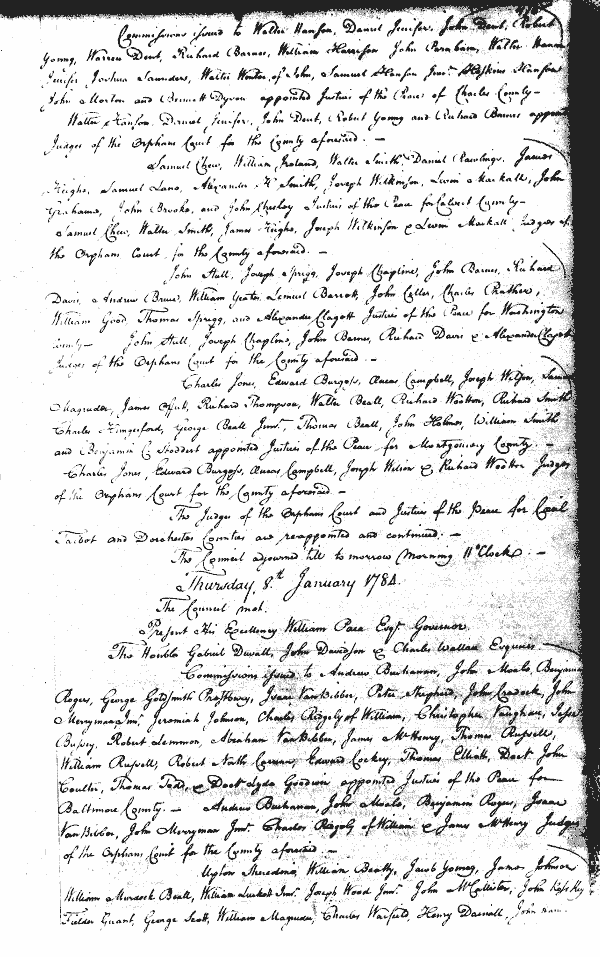 Commissions issued to Walter Hanson, Daniel Jenifer, John Dent, Robert
Young, Warren Dent, Richard Barnes, William Harrison John Parnham, Walter Hanson
Jenifer, Joshua Saunders, Walter of John, Samuel Hanson Junr. Hoskins Hanson
John Morton and Bennett Dyson appointed Justices of the Peace of Charles County —
Walter Hanson, Daniel Jenifer, John Dent, Robert Young and Richard Barnes appointed
Judges of the Orphans Court for the County aforesaid. —
Samuel Chew, William Ireland, Walter Smith, Daniel Rawlings, James
Heighe, Samuel Lane, Alexander H. Smith, Joseph Wilkinson, Levin Mackall, John
Grahame, John Brooke, and John Chesley Justices of the Peace for Calvert County —
Samuel Chew, Walter Smith, James Heighe, Joseph Wilkinson & Levin Mackall Judges of
the Orphans Court, for the County aforesaid. —
John Stull, Joseph Sprigg, Joseph Chapline, John Barnes, Richard
Davis, Andrew Bruce, William Yeates, Lemuel Barrett, John Celler, Charles Prather,
William Good Thomas Sprigg, and Alexander Clagett Justices of the Peace for Washington
County — John Stull, Joseph Chapline, John Barnes, Richard Davis & Alexander Clagett
Judges of the Orphans Court for the County aforesaid. —
Charles Jones, Edward Burgess, Aneas Campbell, Joseph Wilson, Samuel
Magruder, James Offutt, Richard Thompson, Walter Beall, Richard Wootton, Richard Smith
Charles Hungerford, George Beall Junr. Thomas Beall, John Holmes, William Smith
and Benjamin Stoddert appointed Justices of the Peace for Montgomery County. —
Charles Jones, Edward Burgess, Aneas Campbell, Joseph Wilson & Richard Wootton Judges
of the Orphans Court for the County aforesaid. —
The Judges of the Orphans Court and Justices of the Peace for Cecil
Talbot and Dorchester Counties are reappointed and continued. —
The Council adjourned till to morrow Morning 11 oClock. —
Thursday, 8th January 1784.
The Council met.
Present His Excellency William Paca Esqr. Governor
The Honble Gabriel Duvall, John Davidson & Charles Wallace Esquires
Commissions issued to Andrew Buchanan, John Moale, Benjamin
Rogers, George Goldsmith Presbury, Isaac VanBibber, Peter Shepherd, John Cradock, John
Merryman Junr. Jeremiah Johnson, Charles Ridgely of William, Christopher Vaughan, Jesse
Bussey, Robert Lemmon, Abraham VanBibber, James McHenry, Thomas Russell,
William Russell, Robert North Edward Cockey, Thomas Elliott, Doctr John
Coulter, Thomas Todd, & Doctr Lyde Goodwin appointed Justices of the Peace for
Baltimore County. — Andrew Buchanan, John Moale, Benjamin Rogers, Isaac
VanBibber, John Merryman Junr. Charles Ridgely of William & James McHenry Judges
of the Orphans Court for the County aforesaid. —
Upton Sheredine, William Beatty, Jacob Young, James Johnson
William Murdock Beall, William Luckett Junr. Joseph Wood Junr. John McCallister, John Ross Key
Fielder Gaunt, George Scott, William Magruder, Charles Warfield, Henry Darnall, John